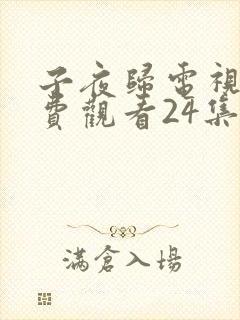 子夜歸電視
費觀看24集
滿倉入場